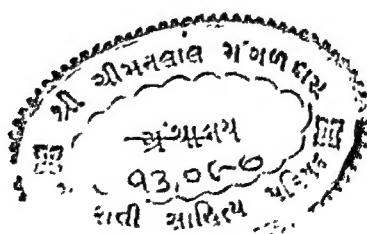 શ્રી ચીમનલાલ મંગળદાસ
ગ્રંથાલય
૧૩,૦૮૭
રાતી સાહિત્ય પરિષદ